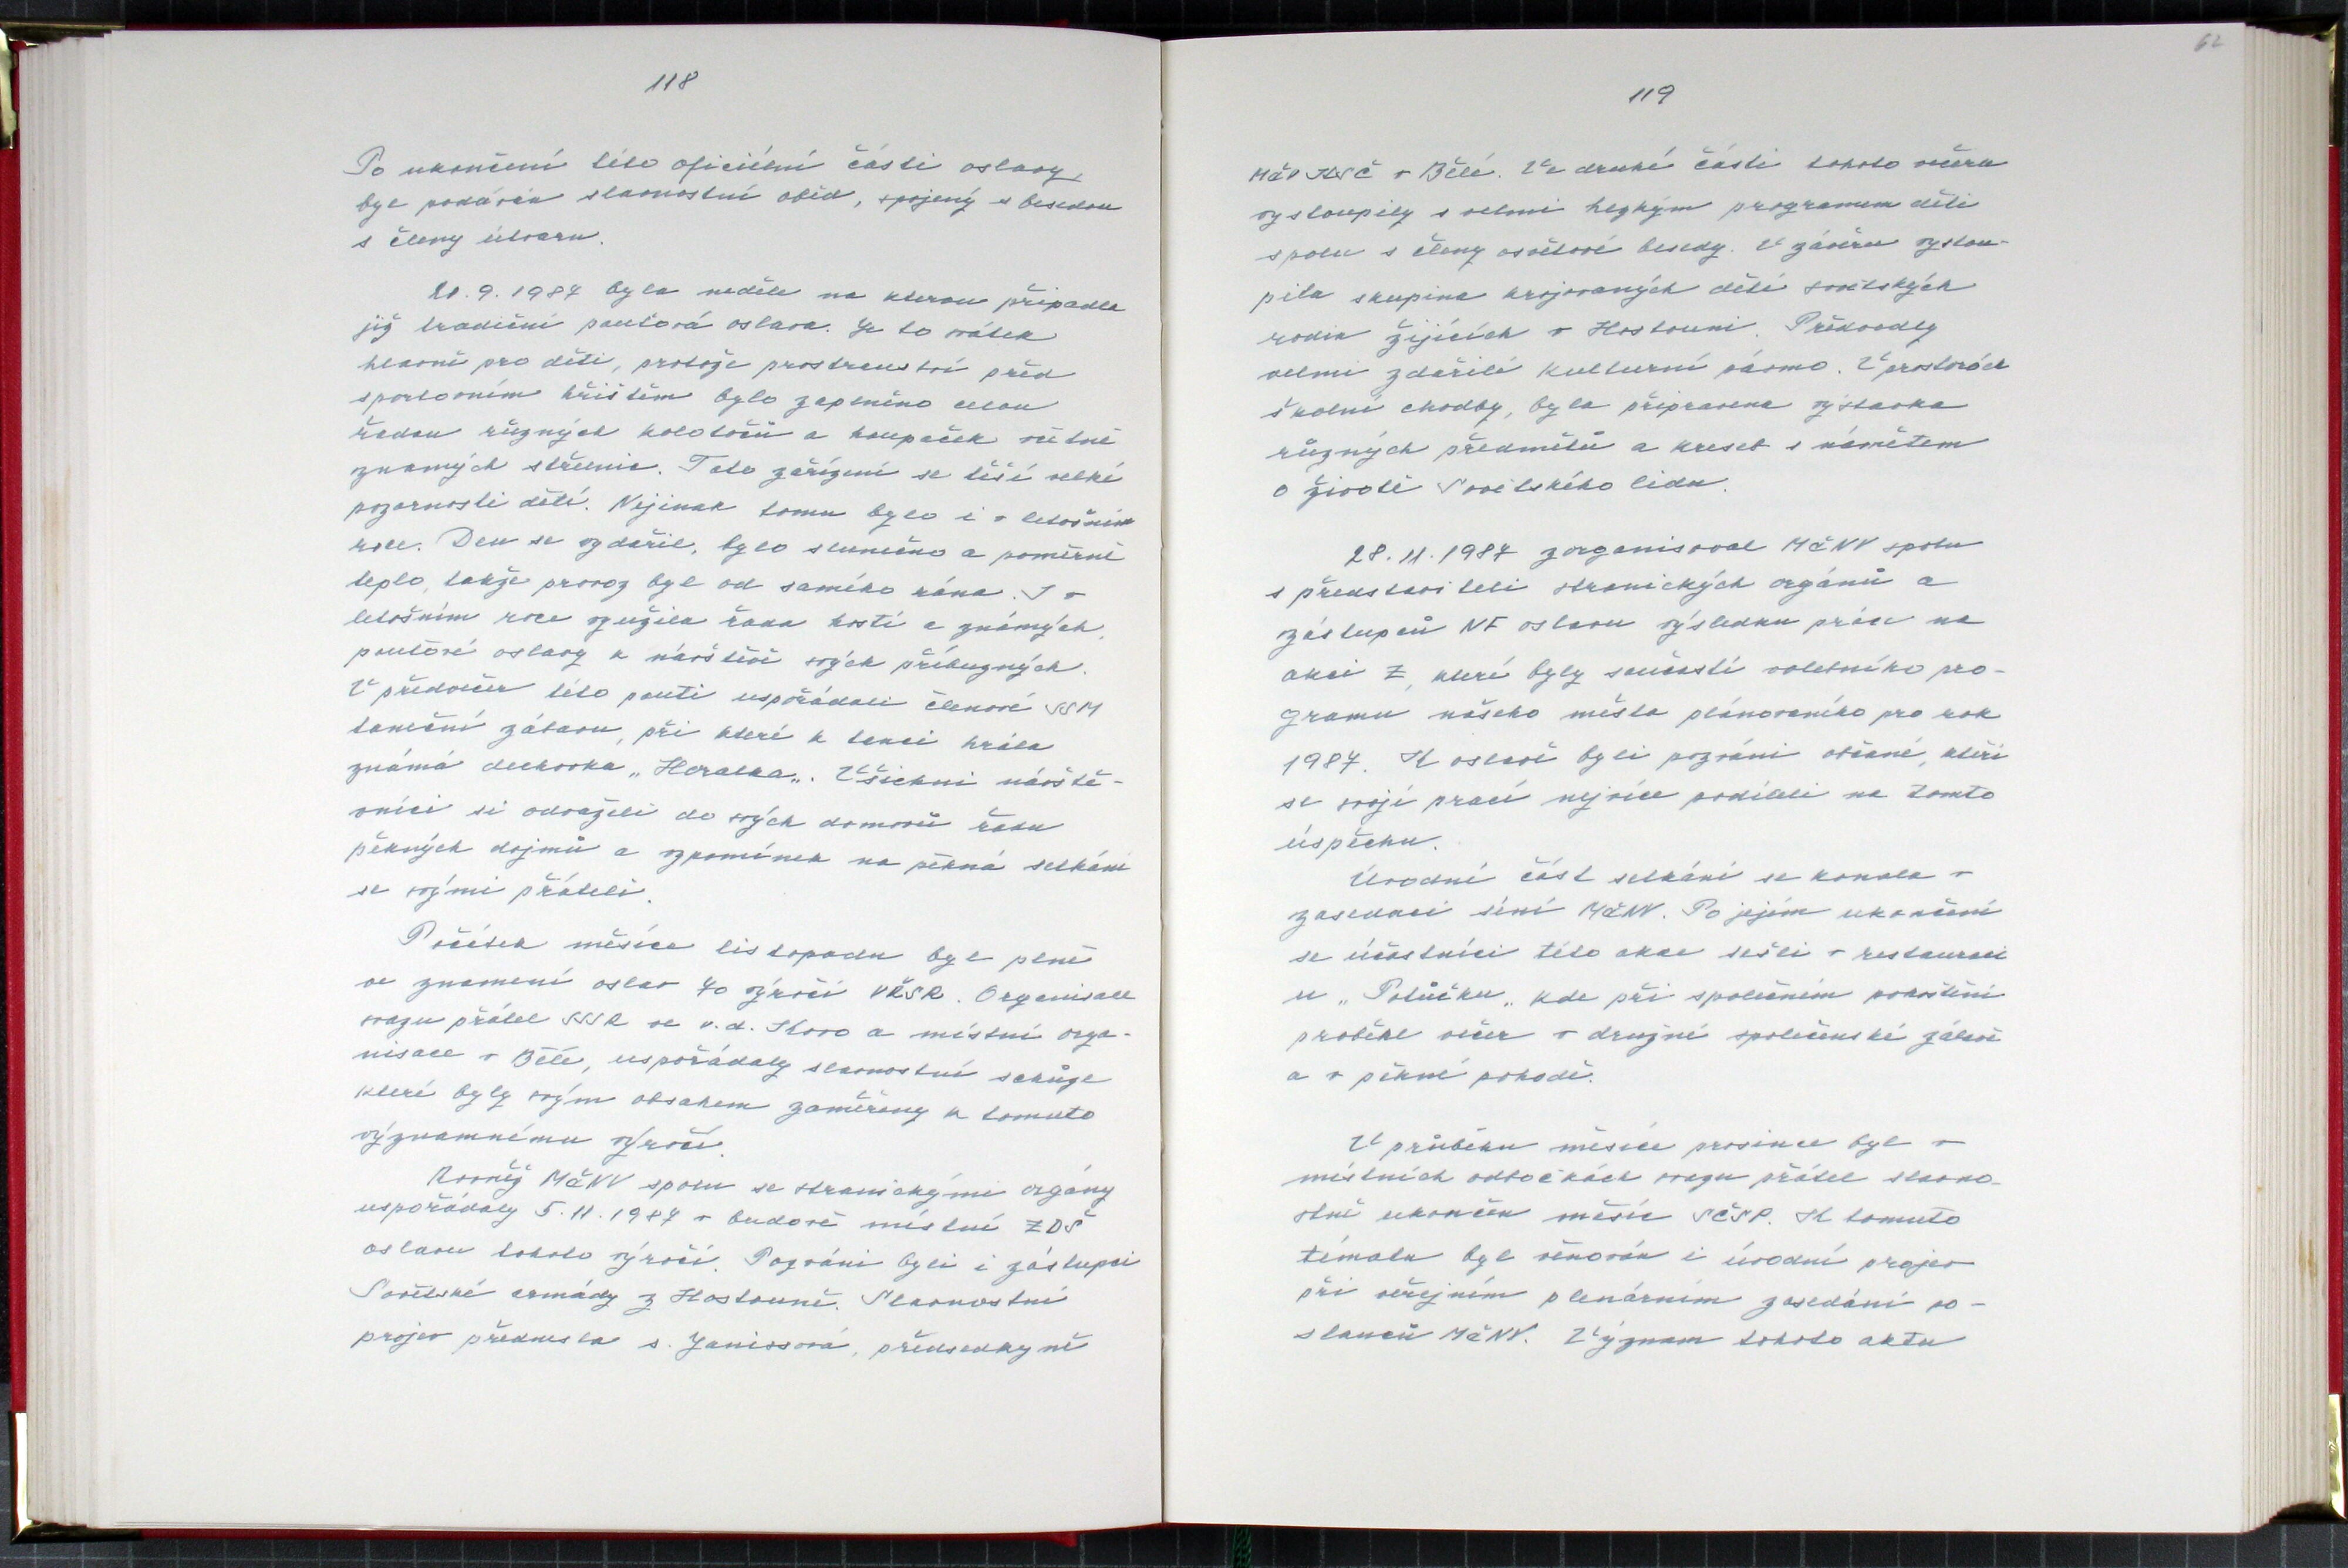 118
Po ukončení této oficiélní části oslavy,
byl podáván slavnostní oběd, spojený s besedou
s členy útvaru.
20.9.1987 byla neděle na kterou připadla
již tradiční pouťová oslava. Je to svátek
hlavně pro děti, protože prostranství před
sportovním hřištěm bylo zaplněno celou
řadou různých kolotočů a houpaček včetně
známých střelnic. Toto zařízení se těší velké
pozornosti dětí. Nejinak tomu bylo i v letošním
roce. Den se vydařil, bylo slunečno a poměrně
teplo, takže provoz byl od samého rána. I v
letošním roce využila řada hostí a známých,
pouťové oslavy k návštěvě svých příbuzných.
V předvečer této pouti uspořádali členové SSM
taneční zábavu, při které k tanci hrála
známá dechovka „Horalka„. Všichni návště-
vníci si odváželi do svých domovů řadu
pěkných dojmů a vzpomínek na pěkná setkání
se svými přáteli.
Počátek měsíce listopadu byl plně
ve znamení oslav 70 výročí VŘSR. Organisace
svazu přátel SSSR ve v.d. Kovo a místní orga-
nisace v Bělé, uspořádaly slavnostní schůze
které byly svým obsahem zaměřeny k tomuto
významnému výročí.
Rovněž MěNV spolu se stranickými orgány
uspořádaly 5.11.1987 v budově místní ZDŠ
oslavu tohoto výročí. Pozváni byli i zástupci
Sovětské armády z Hostouně. Slavnostní
projev přednesla s. Janissová, předsedkyně
62
119
MěV KSČ v Bělé. Ve druhé části tohoto večera
vystoupily s velmi hezkým programem děti
spolu s členy osvětové besedy. V závěru vystou-
pila skupina krojovaných dětí sovětských
rodin žijících v Hostouni. Předvedly
velmi zdařilé kulturní pásmo. V prostorách
školní chodby, byla připravena výstavka
různých předmětů a kreseb s námětem
o životě Sovětského lidu.
28.11.1987 zorganisoval MěNV spolu
s představiteli stranických orgánů a
zástupců NF oslavu výsledku práce na
akci Z, které byly součástí volebního pro-
gramu našeho města plánovaného pro rok
1987. K oslavě byli pozváni občané, kteří
se svojí prací nejvíce podíleli na tomto
úspěchu.
Úvodní část setkání se konala v
zasedací síni MěNV. Po jejím ukončení
se účastníci této akce sešli v restauraci
u „Potůčku„ kde při společném pohoštění
proběhl večer v družné společenské zábavě
a v pěkné pohodě.
V průběhu měsíce prosince byl v
místních odbočkách svazu přátel slavno-
stně ukončen měsíc SČSP. K tomuto
tématu byl věnován i úvodní projev
při veřejném plenárním zasedání po-
slanců MěNV. Význam tohoto aktu